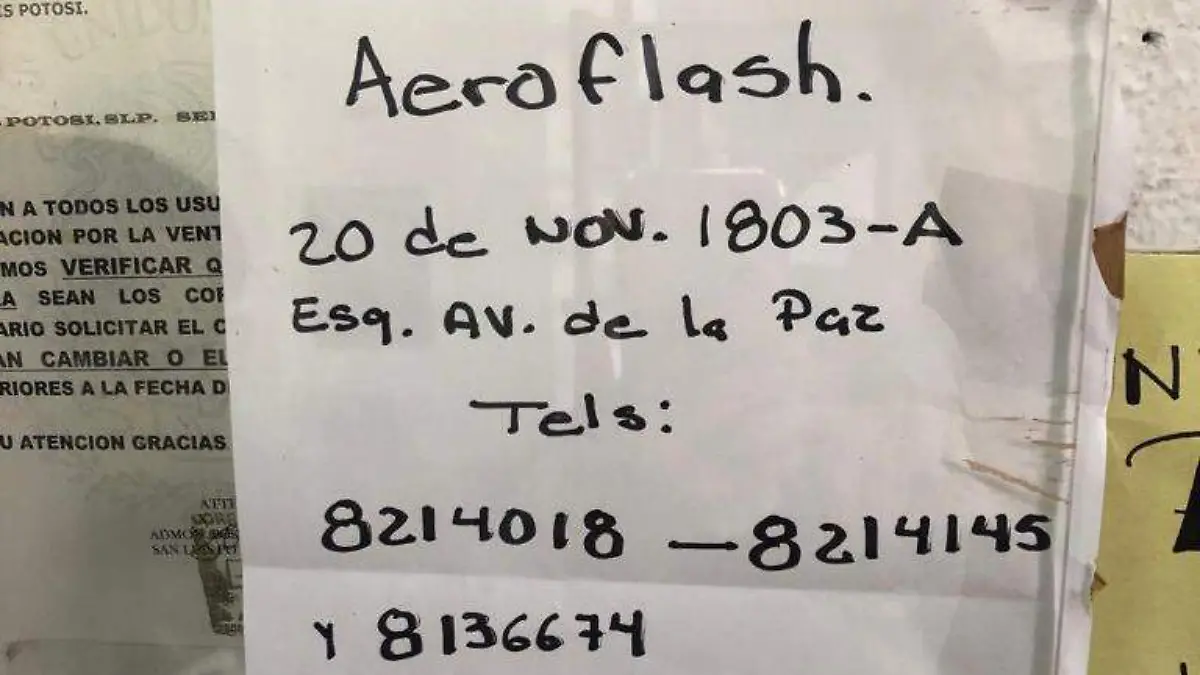 ES POTOSI.
POTOSI, SLP.
N A TODOS LOS USU
ACION POR LA VENT
MOS VERIFICAR Q
A SEAN LOS COR
ARIO SOLICITAR EL C
AN CAMBIAR O EL
RIORES A LA FECHA D
U ATENCION GRACIAS
Aeroflash.
20 de NOV. 1803-A
Esq. AV. de la Paz
Tels:
8214018 — 8214145
Y 8136674
N